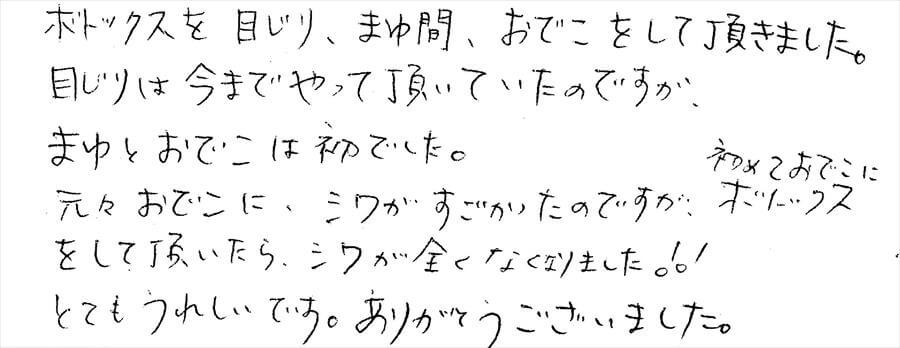 ボトックスを目じり、まゆ間、おでこをして頂きました。
目じりは今までやって頂いていたのですが、
まゆとおでこは初でした。
初めておでこに
元々おでこに、シワがすごかったのですが、ボトックス
をして頂いたら、シワが全くなくなりました!!
とてもうれしいです。ありがとうございました。